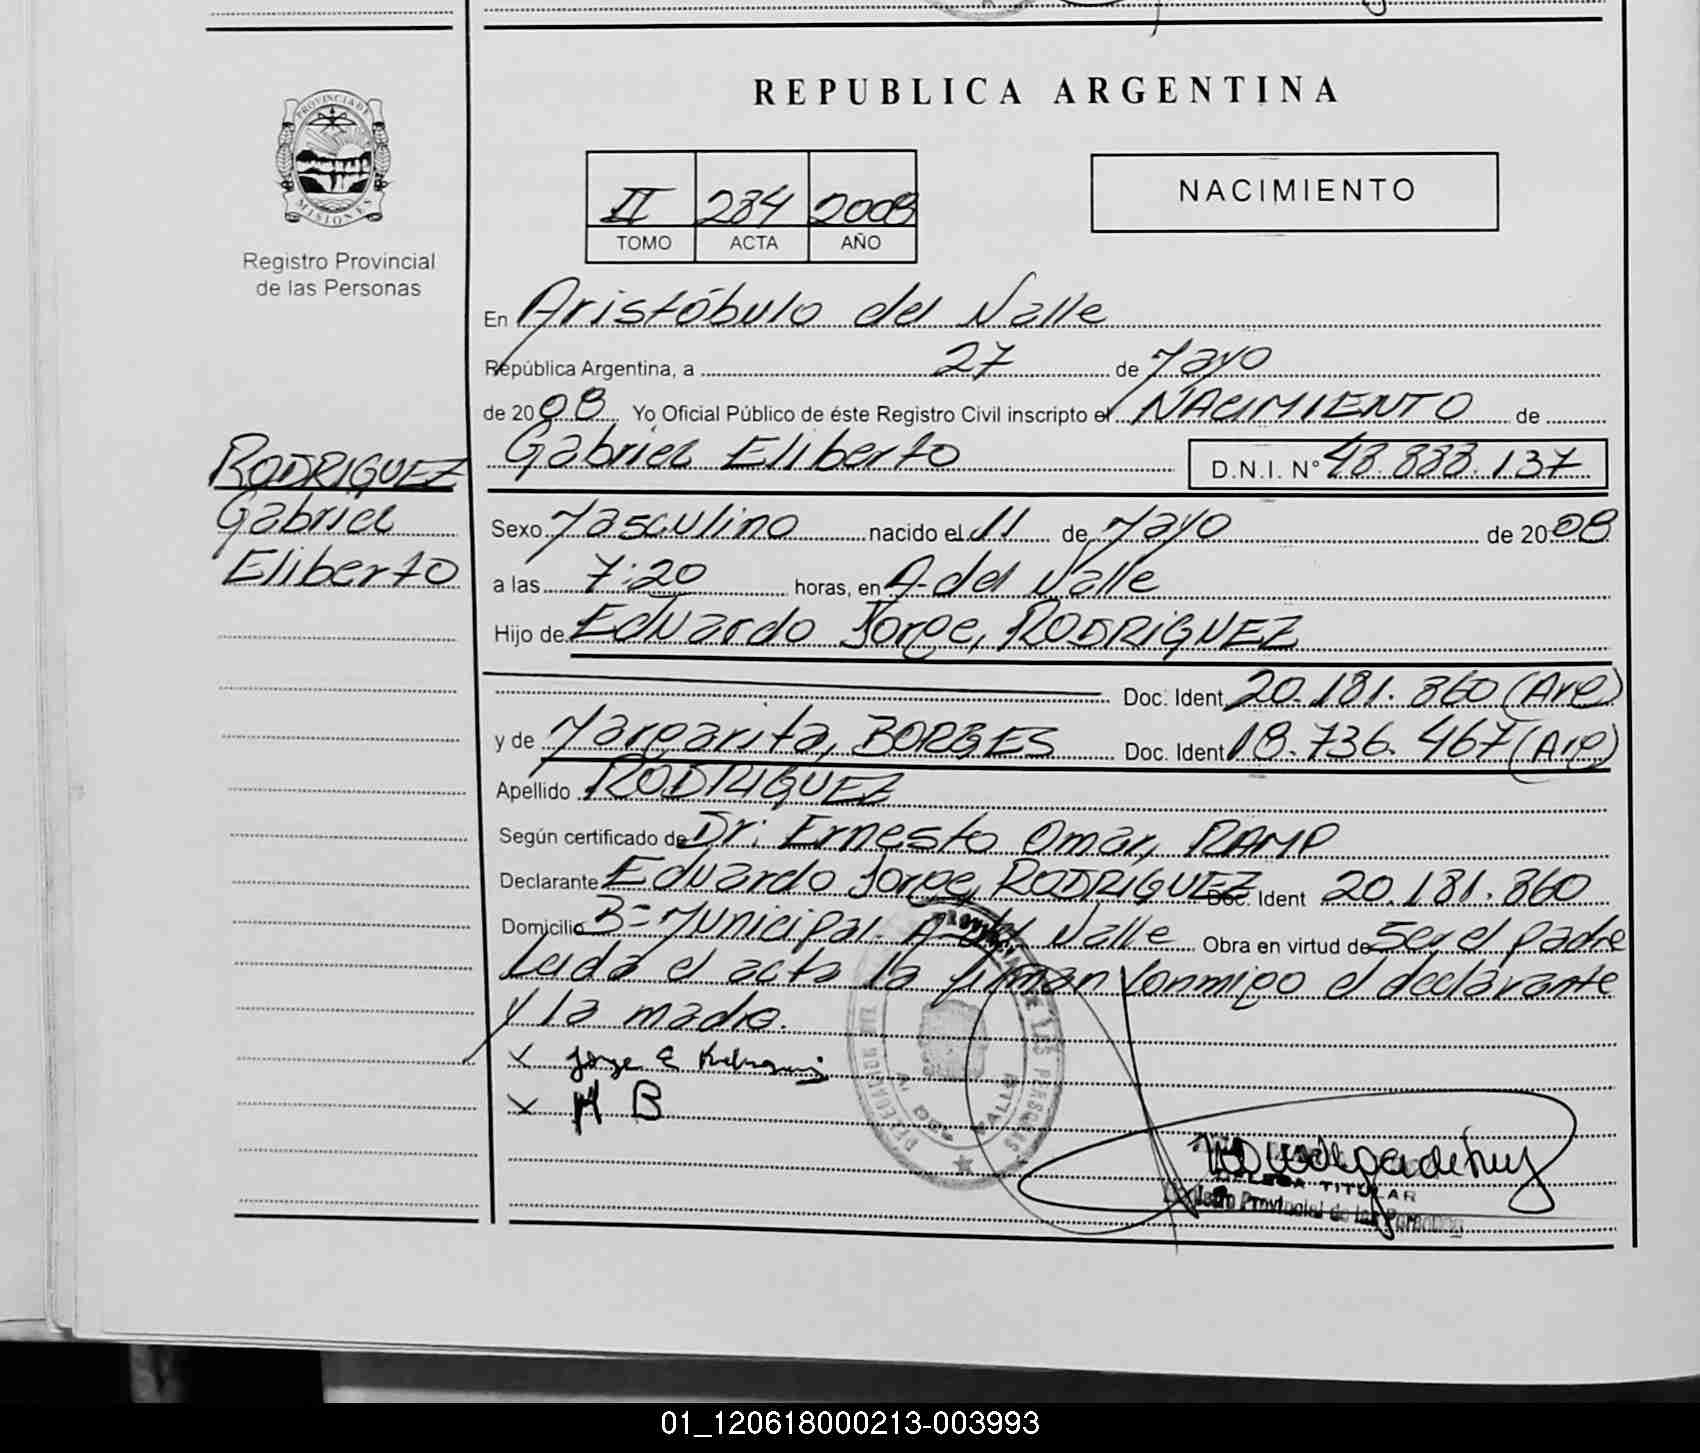 REPUBLICA ARGENTINA
PROVINCIA DE MISIONES
Registro Provincial
de las Personas
II 234 2008
TOMO ACTA AÑO
NACIMIENTO
En Aristóbulo del Valle
República Argentina, a 27 de Mayo
de 2008 Yo Oficial Público de éste Registro Civil inscripto el NACIMIENTO de
Gabriel Eliberto D.N.I. N° 48.888.137
RODRIGUEZ
Gabriel
Eliberto
Sexo Masculino nacido el 11 de Mayo de 2008
a las 7:20 horas, en A. del Valle
Hijo de Eduardo Jorge, RODRIGUEZ
Doc. Ident 20.181.860 (Arg)
y de Margarita, BORGES Doc. Ident 18.736.467 (Arg)
Apellido RODRIGUEZ
Según certificado de Dr. Ernesto Omar, RAMP
Declarante Eduardo Jorge, RODRIGUEZ Doc. Ident 20.181.860
Domicilio B= Municipal. A. del Valle Obra en virtud de Ser el padre
Leída el acta la firman conmigo el declarante
y la madre.
x Jorge E
x M B
TITULAR
Registro Provincial de las Personas
01_120618000213-003993